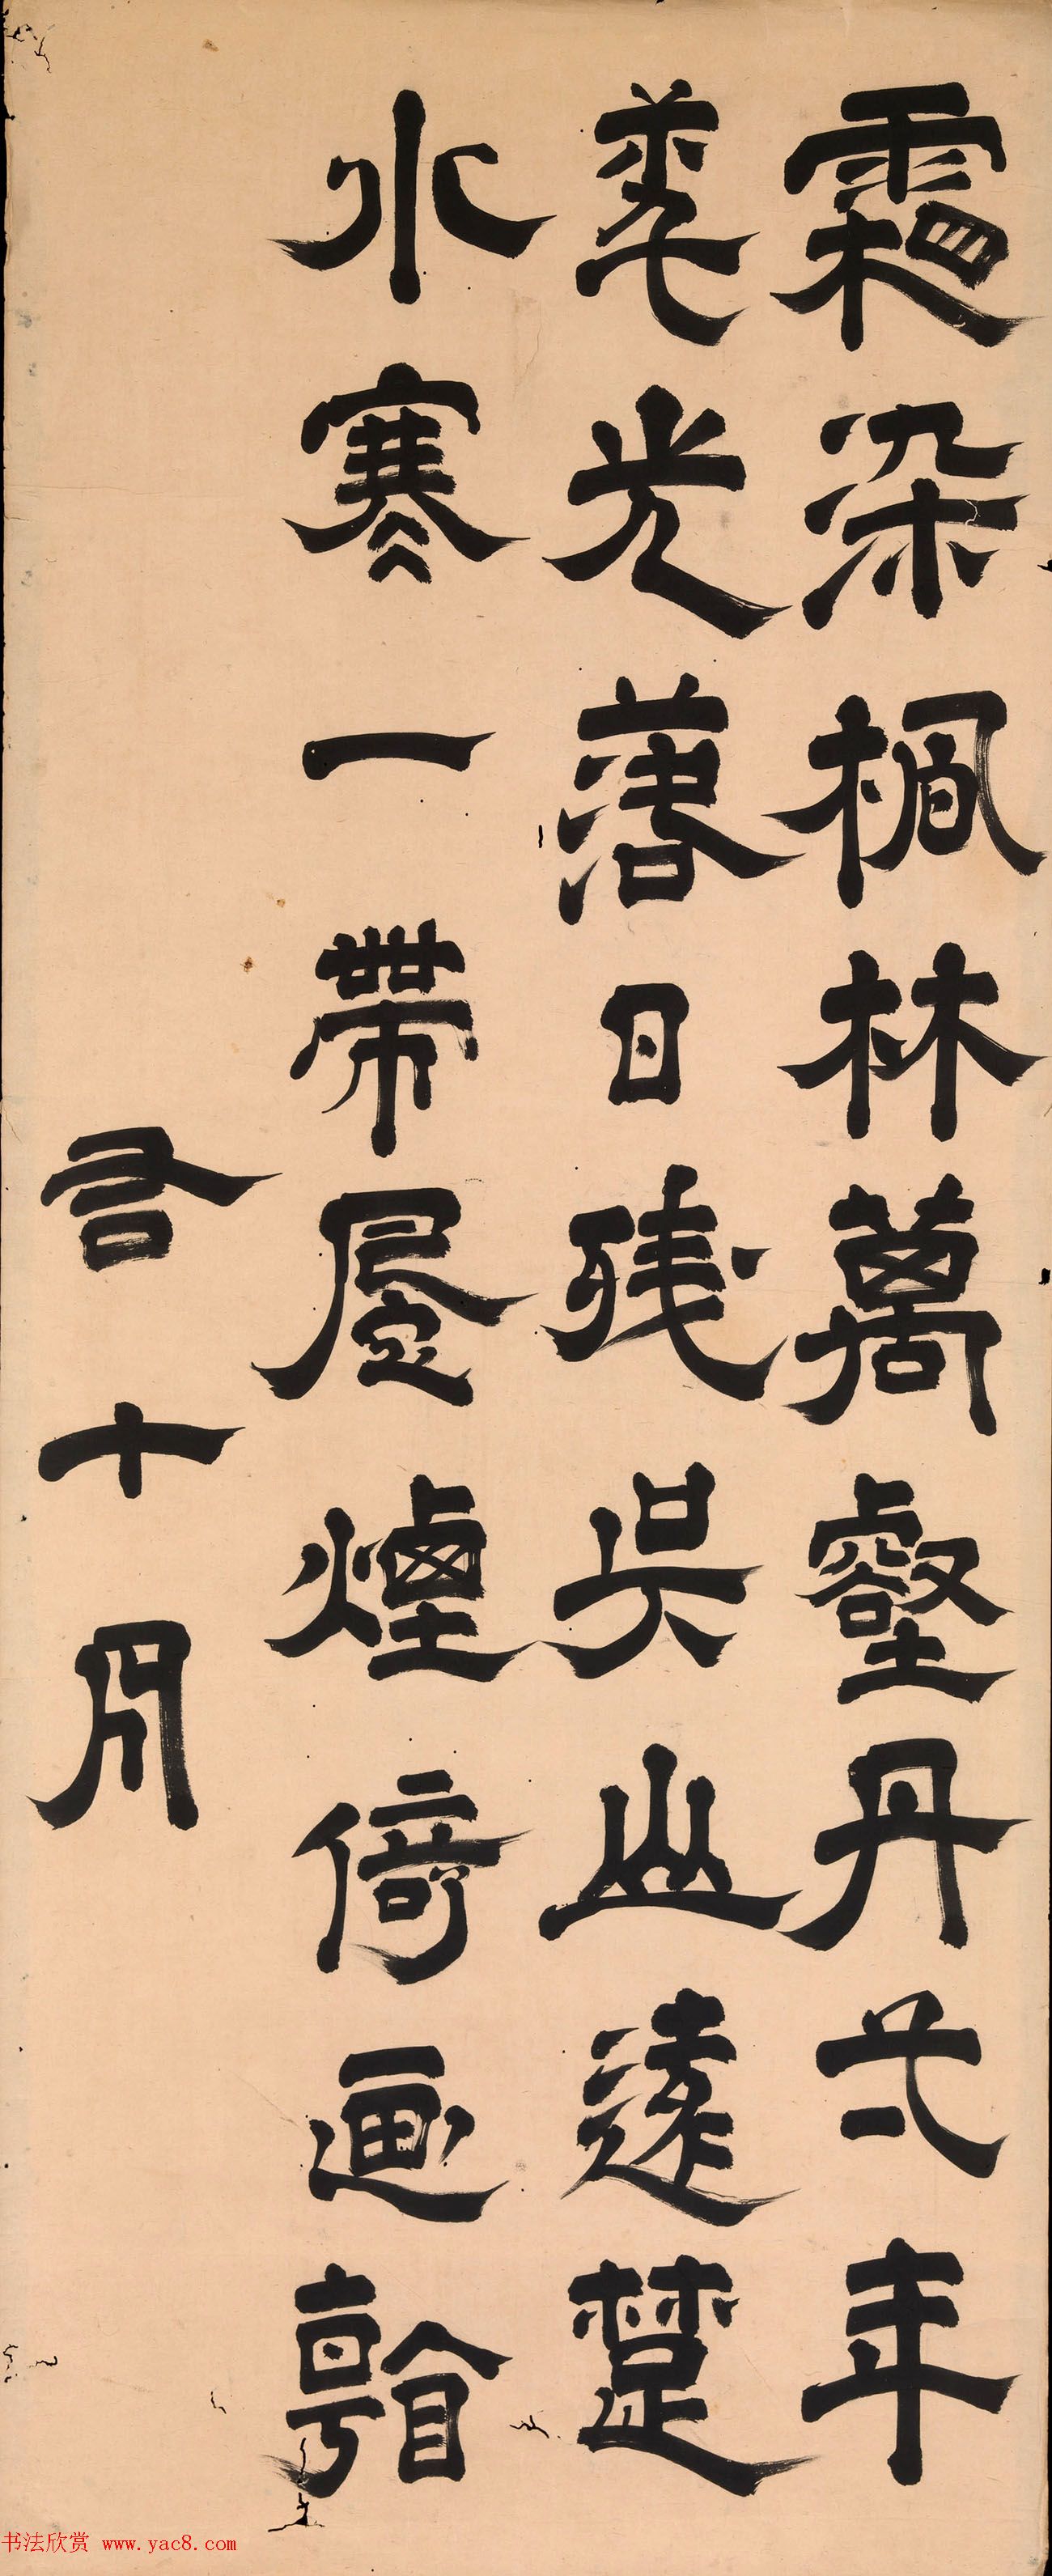 霜染楓林萬壑丹年
華光落日殘吳山遠楚
水寒一帶層煙倚畫
君十
书法欣赏 www.yac8.com